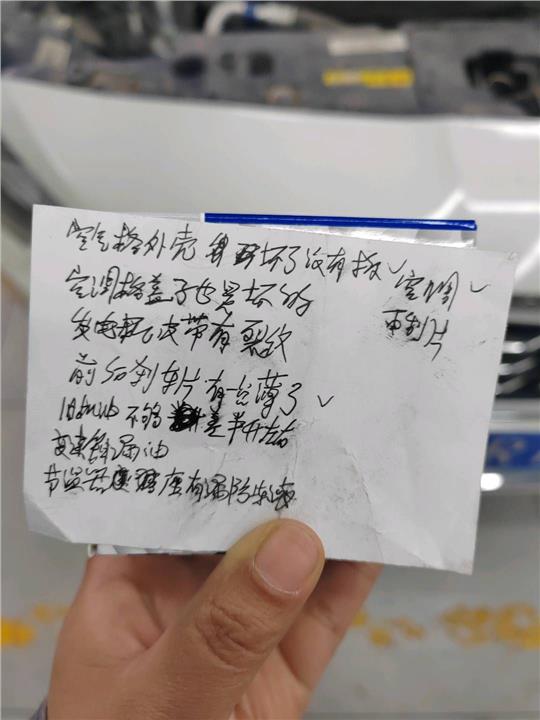 空气格外壳 坏了没有板✓
空调格盖子也是坏的
空调✓
刹片
发电机皮带有裂纹
前后刹车片有一台薄了✓
旧机油不够 差半升左右
变速箱漏油
节温器座有漏防冻液